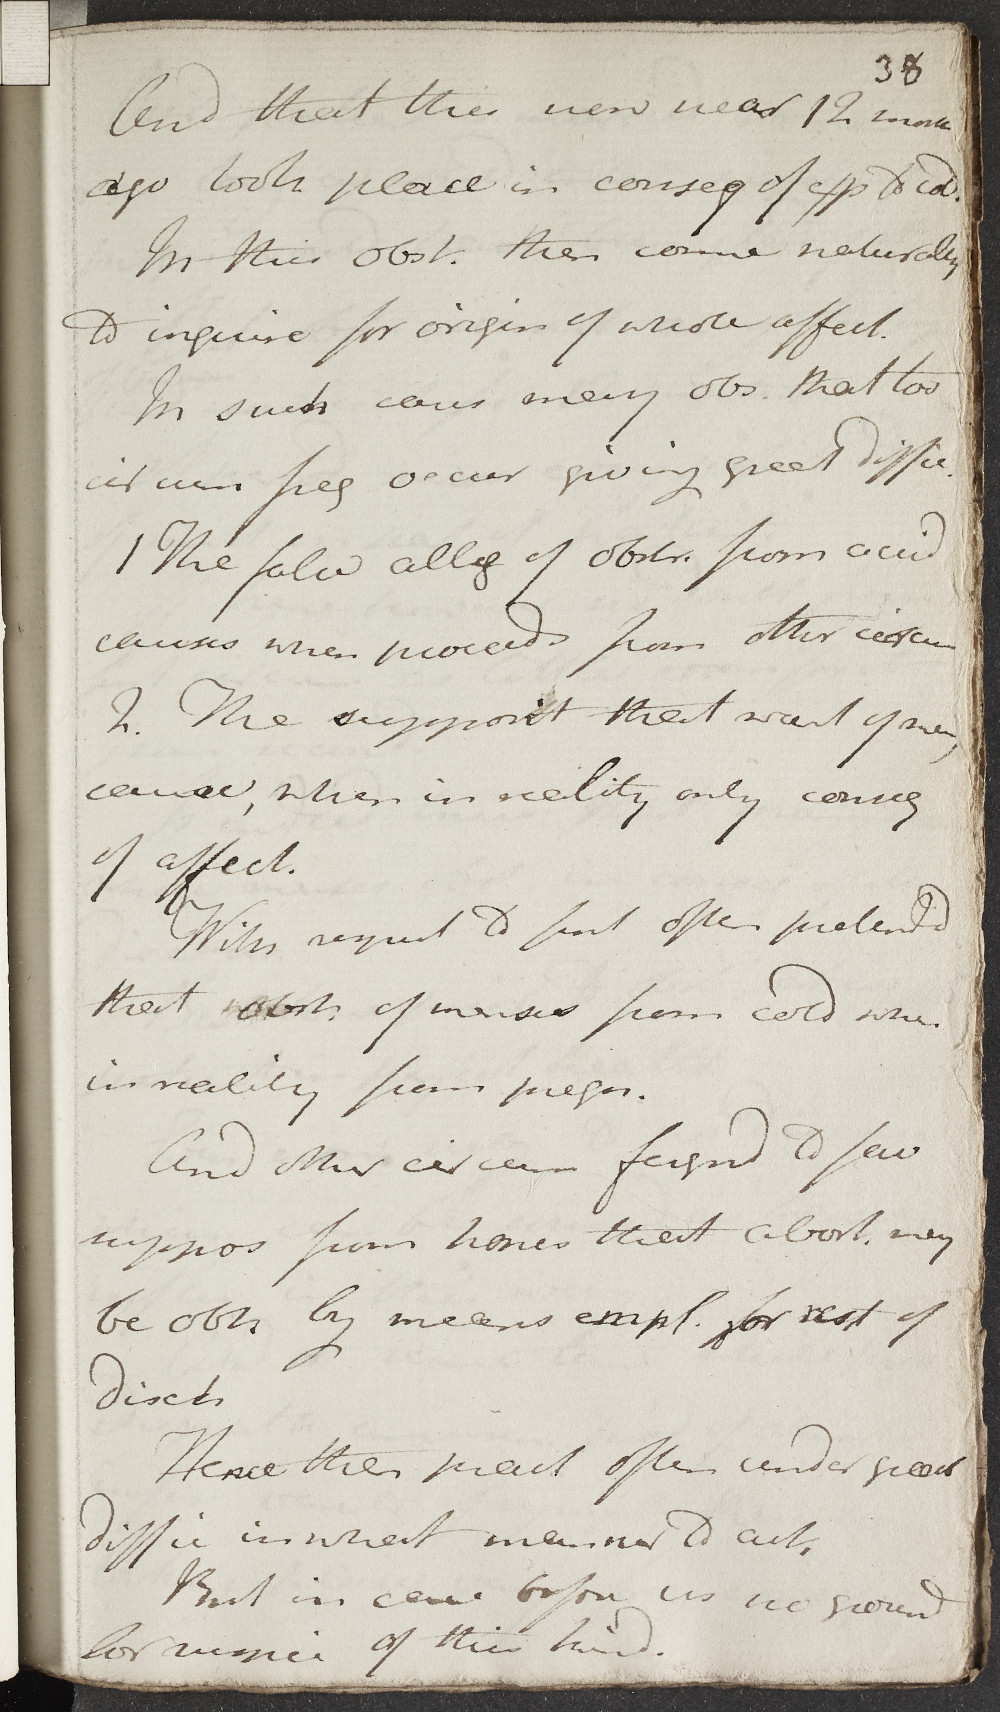 38
And that this now near 12 month
ago took place in conseq of exp to cd.
In this obst. then come naturally
to inquire for origin of whole affect.
In such cases many obs. that too
circum freq occur giving great diffic.
1 The false alleg of obstr. from accid
causes when proceeds from other circum
2. The support that want of men,
cause, when in reality only conseq
of affect.
With respect to first often pretend'd
that obstr. of menses from cold when
in reality from pregn.
And other circum feignd to fav
suppos from hopes that abort. may
be obt. by means empl. for rest of
disch
Hence then pract often under great
diffic in what manner to act.
But in case before us no ground
for suspic of this kind.